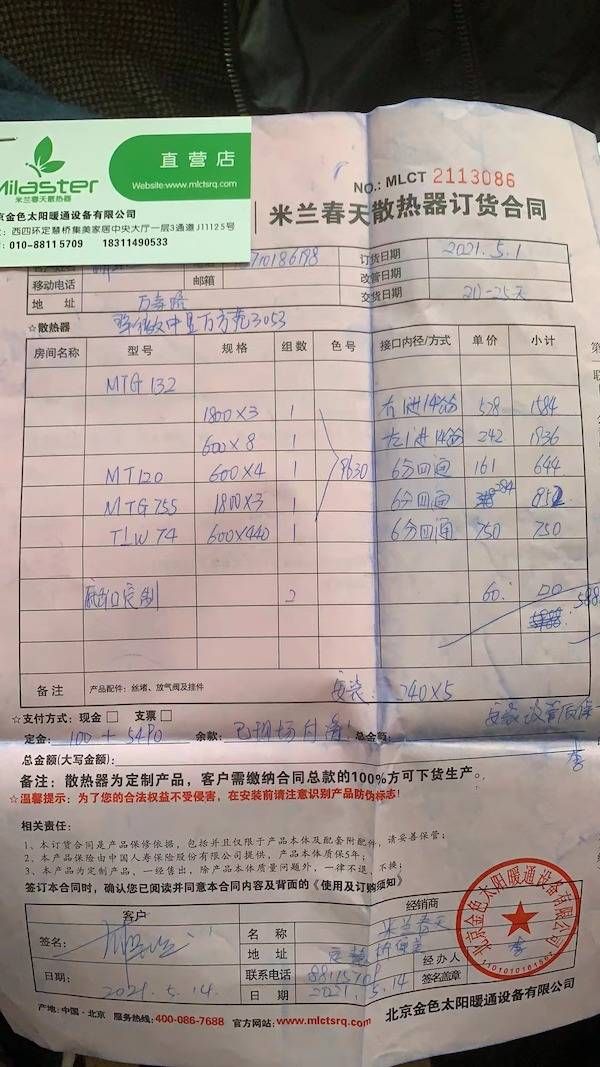 Milaster
米兰春天散热器
直营店
Website:www.mlctsrq.com
京金色太阳暖通设备有限公司
西四环定慧桥集美家居中央大厅一层3通道J11125号
010-88115709 18311490533
NO.: MLCT 2113086
米兰春天散热器订货合同
订货日期 2021.5.1
移动电话 邮箱 改管日期
地址 万寿路 交货日期 20-25天
☆散热器
房间名称 型号 规格 组数 色号 接口内径/方式 单价 小计
MTG 132
1800×3 1 右1进14分 528 1584
600×8 1 左1进14分 242 1936
MT120 600×4 1 9630 6分四通 161 644
MTG755 1800×3 1 6分四通 284 852
TLW 74 600×440 1 6分四通 750 750
2 60.
备注 产品配件：丝堵、放气阀及挂件 安装：240×5
☆支付方式：现金□ 支票□
定金：100+5490 余款：已现场付清 总金额：
总金额(大写金额)：
备注：散热器为定制产品，客户需缴纳合同总款的100%方可下货生产。
☆温馨提示：为了您的合法权益不受侵害，在安装前请注意识别产品防伪标志！
相关责任：
1、本订货合同是产品保修依据，包括并且仅限于产品本体及配套附配件，请妥善保管；
2、本产品保险由中国人寿保险股份有限公司提供，产品本体质保5年；
3、本产品为定制产品，一经售出，除产品本体质量问题外，一律不退、不换；
签订本合同时，确认您已阅读并同意本合同内容及背面的《使用及订购须知》
客户 经销商
签名： 名称 米兰春天
地址 定慧桥集美 经办人 李
联系电话 88115709 签名盖章
日期：2021.5.14. 日期 2021.5.14
北京金色太阳暖通设备有限公司
产地：中国·北京 服务热线：400-086-7688 官方网站：www.mlctsrq.com 北京金色太阳暖通设备有限公司